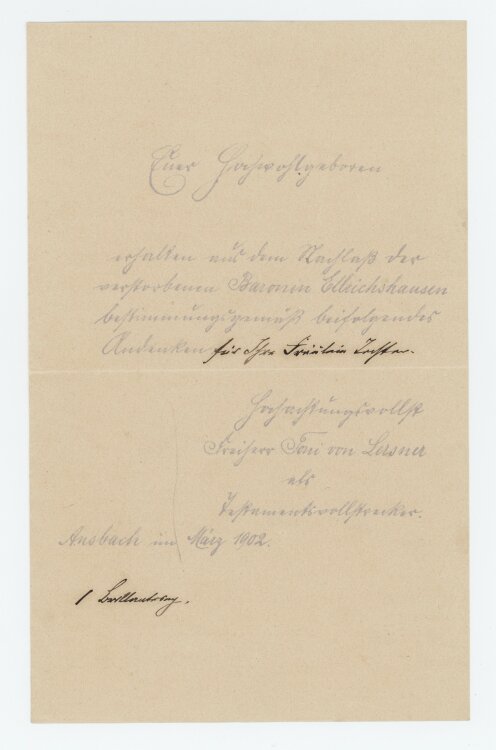 Euer Hochwohlgeboren
erhalten aus dem Nachlaß der
verstorbenen Baronin Ellrichshausen
bestimmungsgemäß beifolgendes
Andenken für Ihre Fräulein Tochter.
Hochachtungsvollst
Freiherr Toni von Lersner
als
Testamentsvollstrecker.
Ansbach im März 1902.
1